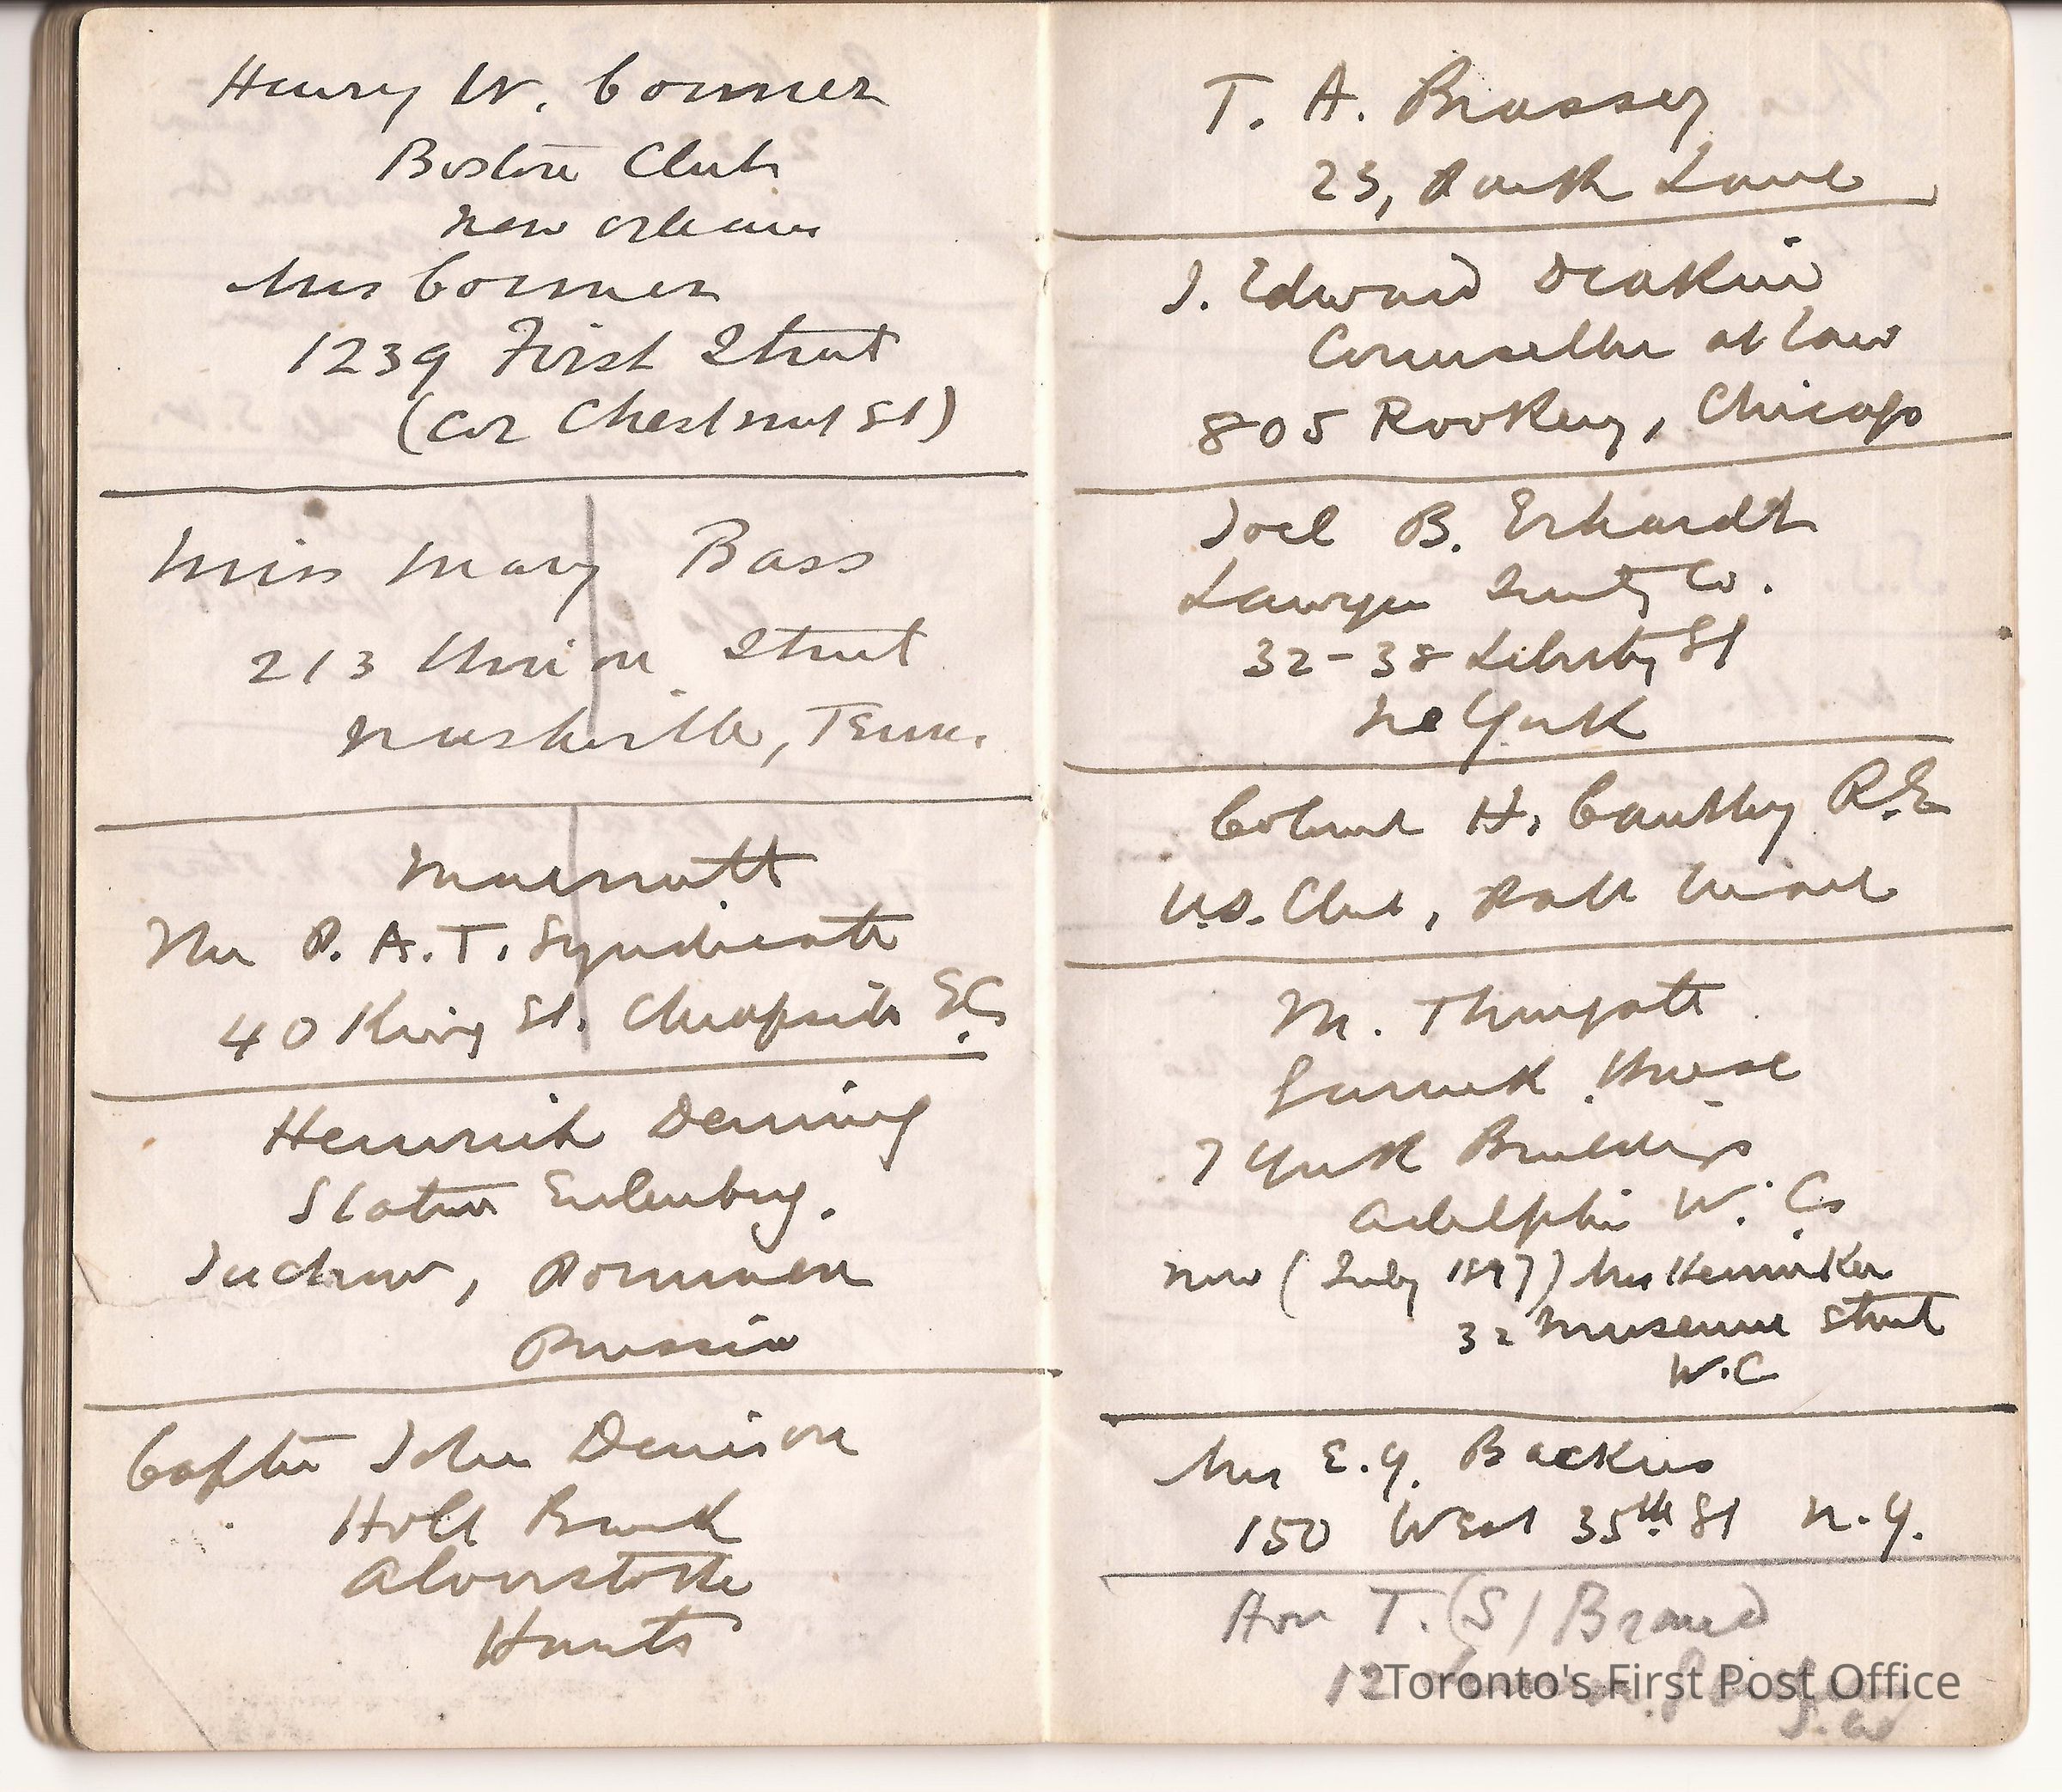 Henry W. Conner
Boston Club
New Orleans
Mrs Conner
1239 First Street
(Cor Chestnut St)
Miss Mary Bass
213 Union Street
Nashville, Tenn.
Marriott
The P. A. T. Syndicate
40 King St. Cheapside E.C.
Heinrich Dening
Station Eulenburg.
Juchow, Pommern
Prussia
Captn John Denison
Holt Bank
Alverstoke
Hants
T. A. Brassey
23, Park Lane
J. Edward Deakin
Counsellor at Law
805 Rookery, Chicago
Joel B. Erhardt
Lawyers Surety Co.
32-38 Liberty St
Ne York
Colonel H. Cautley R.E
U.S. Club, Pall Mall
M. Thingate
Garrick House
7 York Buildings
Adelphi W. C.
Now (July 1897) Mrs
32 Museum Street
W.C
Mrs E. Y. Backus
150 West 35th St N.Y.
Hon T. (S) Brand
12
S.W
Toronto's First Post Office